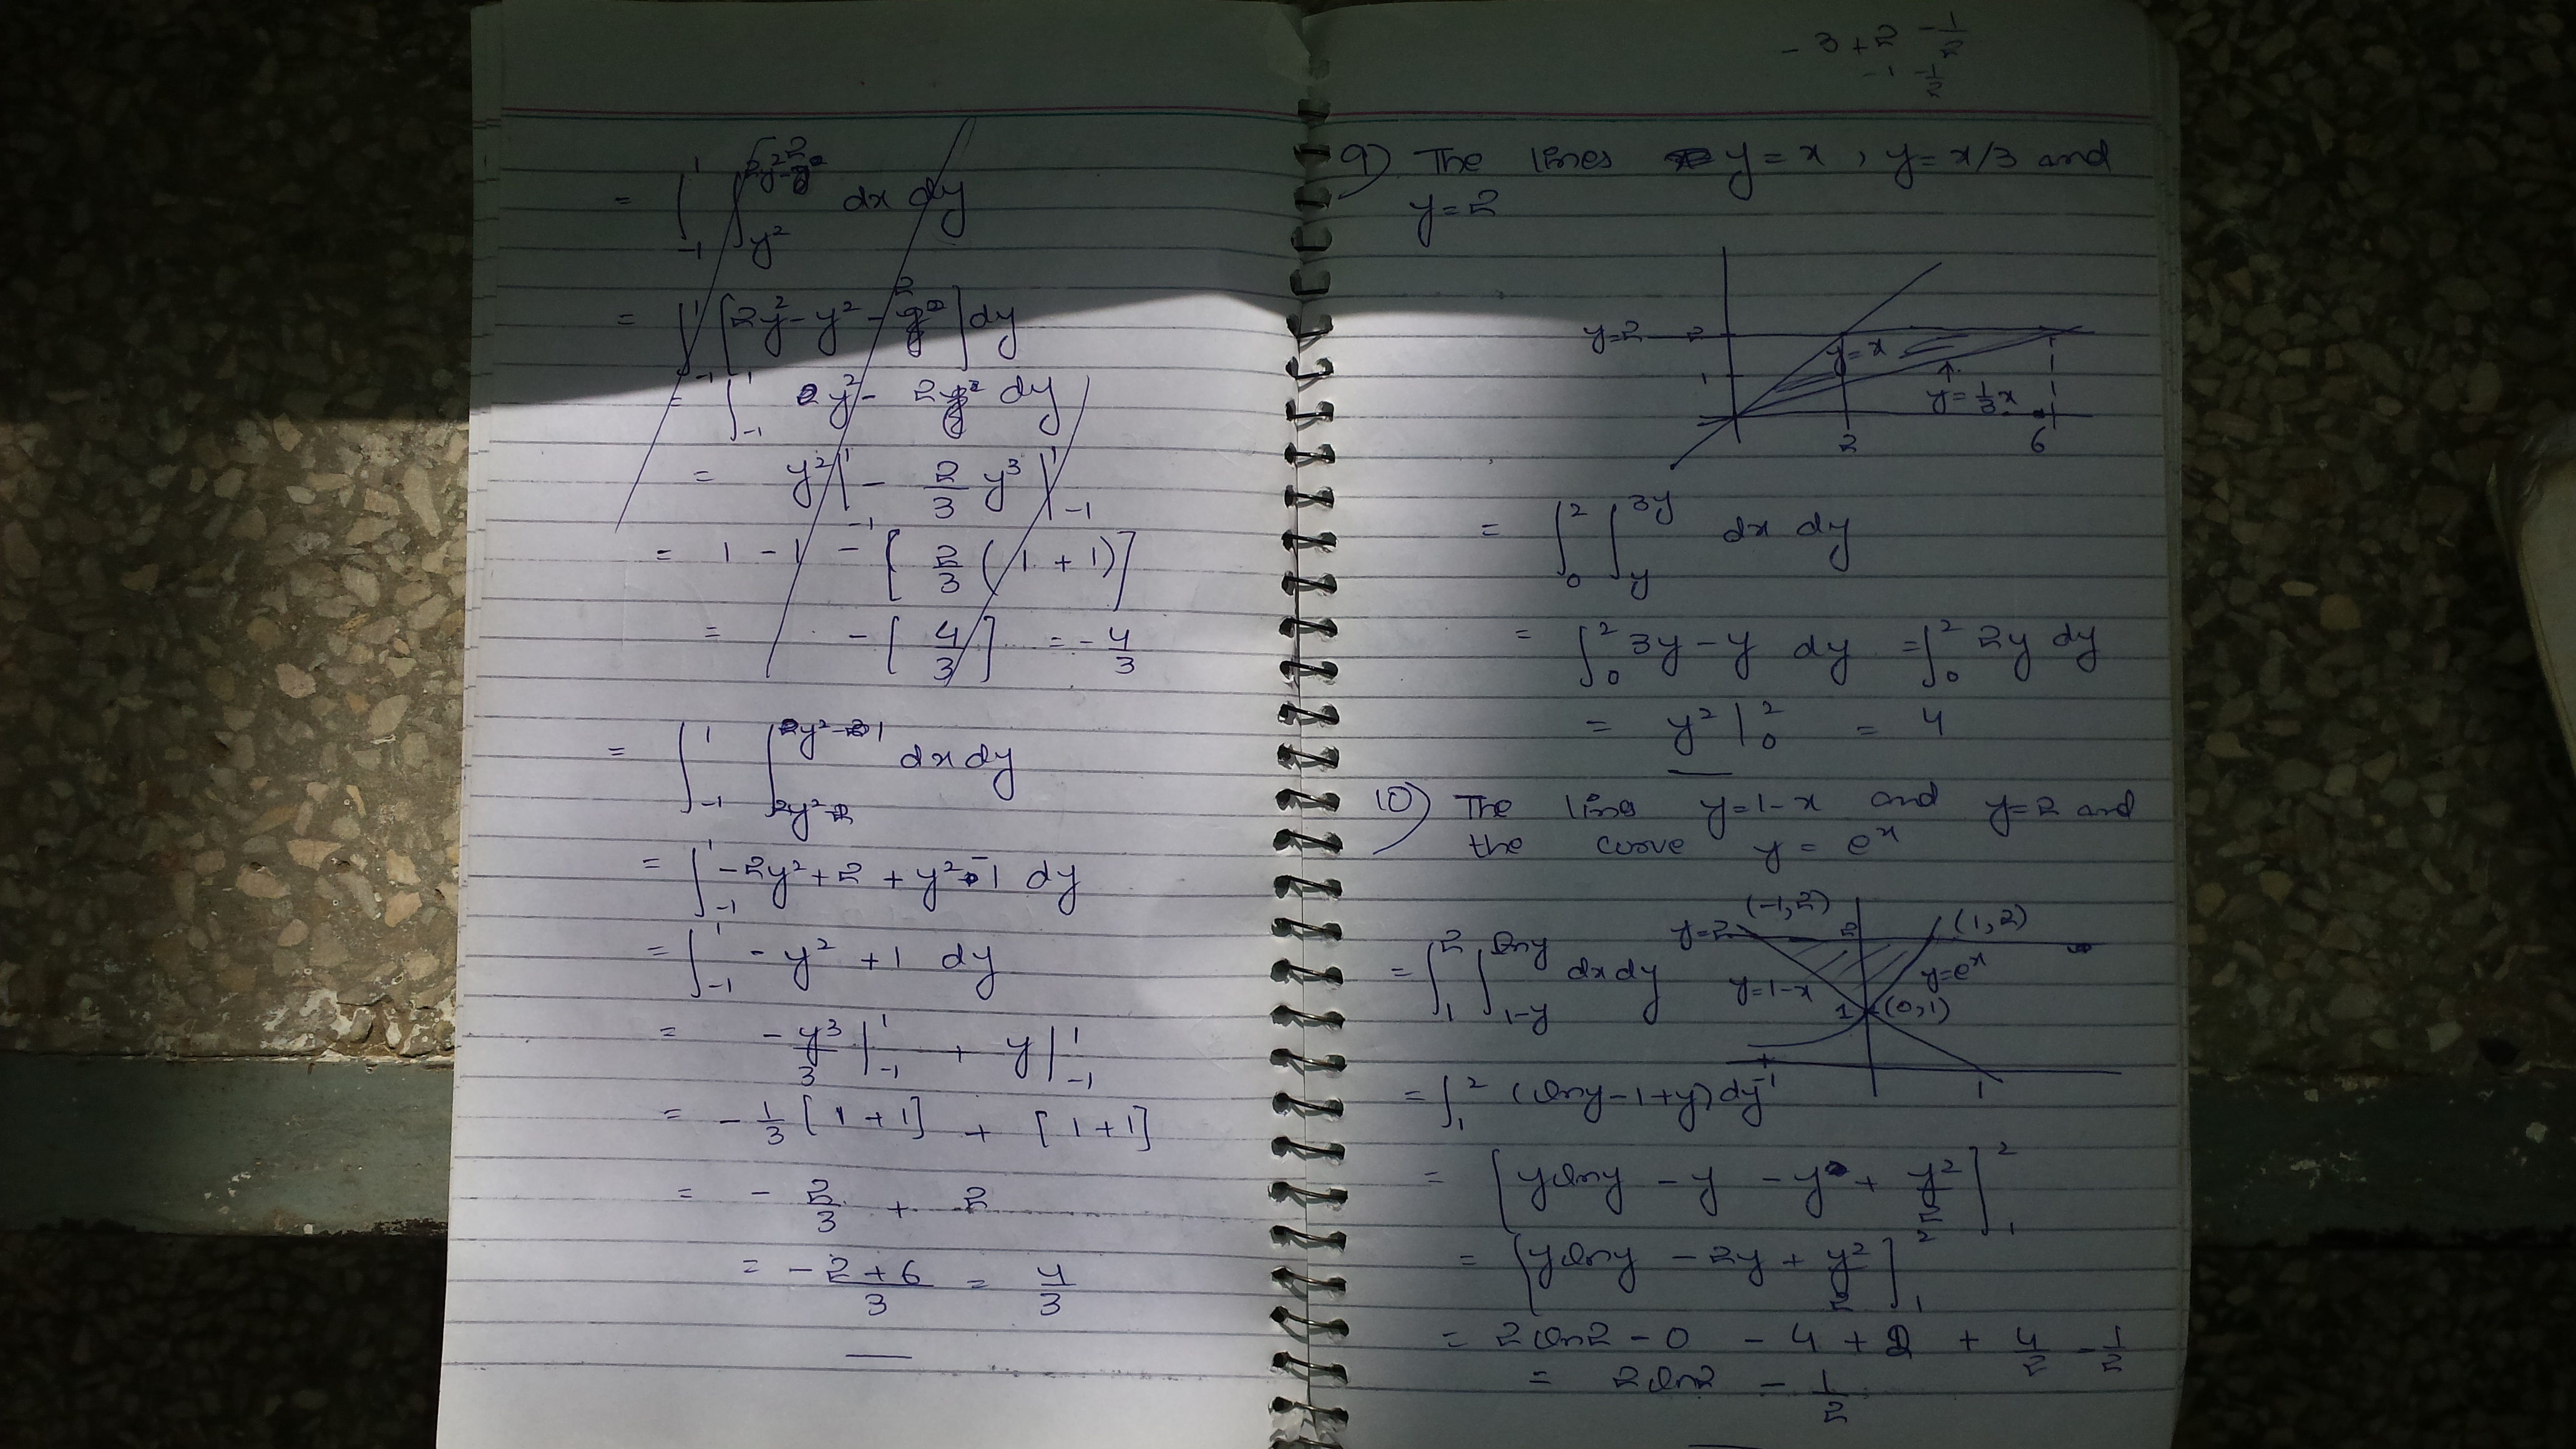 = ∫₋₁¹ ∫ y² dx dy
= ∫₋₁¹ [2y² - y² - y²] dy
= ∫₋₁¹ 2y² - 2y² dy
= y² |₋₁¹ - 2/3 y³ |₋₁¹
= 1 - 1 - [ 2/3 (1 + 1) ]
= - [ 4/3 ] = - 4/3
= ∫₋₁¹ ∫ dx dy
= ∫₋₁¹ -2y² + 2 + y² - 1 dy
= ∫₋₁¹ - y² + 1 dy
= - y³/3 |₋₁¹ + y |₋₁¹
= - 1/3 [ 1 + 1 ] + [ 1 + 1 ]
= - 2/3 + 2
= (- 2 + 6)/3 = 4/3
- 3 + 2 - 1/2
- 1 - 1/2
9) The lines y = x , y = x/3 and
y = 2
y=2 2
y = x
1
y = 1/3 x
2 6
= ∫₀² ∫_y^3y dx dy
= ∫₀² 3y - y dy = ∫₀² 2y dy
= y² |₀² = 4
10) The lines y = 1-x and y = 2 and
the curve y = eˣ
(-1,2)
y=2 2 (1,2)
= ∫₁² ∫_1-y^lny dx dy
y=1-x y=eˣ
1 (0,1)
1
= ∫₁² (lny - 1 + y) dy -1
= [ y lny - y - y + y²/2 ]₁²
= [ y lny - 2y + y²/2 ]₁²
= 2 ln2 - 0 - 4 + 2 + 4/2 - 1/2
= 2 ln2 - 1/2